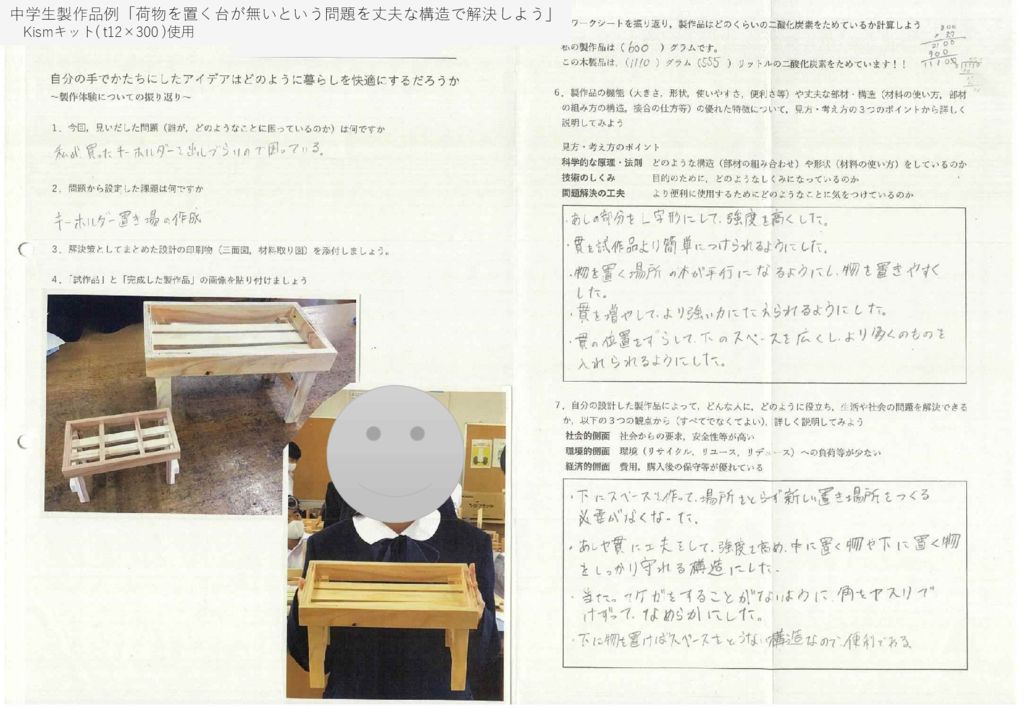 中学生製作品例「荷物を置く台が無いという問題を丈夫な構造で解決しよう」
Kismキット(t12×300)使用
自分の手でかたちにしたアイデアはどのように暮らしを快適にするだろうか
～製作体験についての振り返り～
1．今回，見いだした問題（誰が，どのようなことに困っているのか）は何ですか
私が買ったキーホルダーを出しづらいので困っている。
2．問題から設定した課題は何ですか
キーホルダー置き場の作成
3．解決策としてまとめた設計の印刷物（三面図，材料取り図）を添付しましょう。
4．「試作品」と「完成した製作品」の画像を貼り付けましょう
ワークシートを振り返り，製作品はどのくらいの二酸化炭素をためているか計算しよう
私の製作品は（600）グラムです。
この木製品は，（1110）グラム（555）リットルの二酸化炭素をためています！！
6．製作品の機能（大きさ，形状，使いやすさ，便利さ等）や丈夫な部材・構造（材料の使い方，部材
の組み方の構造，接合の仕方等）の優れた特徴について，見方・考え方の３つのポイントから詳しく
説明してみよう
見方・考え方のポイント
科学的な原理・法則 どのような構造（部材の組み合わせ）や形状（材料の使い方）をしているのか
技術のしくみ 目的のために，どのようなしくみになっているのか
問題解決の工夫 より便利に使用するためにどのようなことに気をつけているのか
・あしの部分をL字形にして、強度を高くした。
・貫を試作品より簡単につけられるようにした。
・物を置く場所の木が平行になるようにし、物を置きやすく
した。
・貫を増やして、より強い力にたえられるようにした。
・貫の位置をずらして、下のスペースを広くし、より多くのものを
入れられるようにした。
7．自分の設計した製作品によって，どんな人に，どのように役立ち，生活や社会の問題を解決できる
か，以下の３つの観点から（すべてでなくてよい），詳しく説明してみよう
社会的側面 社会からの要求，安全性等が高い
環境的側面 環境（リサイクル，リユース，リデュース）への負荷等が少ない
経済的側面 費用，購入後の保守等が優れている
・下にスペースを作って、場所をとらず新しい置き場所をつくる
必要がなくなった。
・あしや貫に工夫をして、強度を高め、中に置く物や下に置く物
をしっかり守れる構造にした。
・当たってケガをすることがないように、角をヤスリで
けずって、なめらかにした。
・下に物を置けばスペースをとらない構造なので、便利である